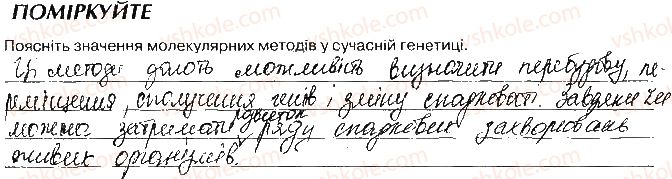 ПОМІРКУЙТЕ
Поясніть значення молекулярних методів у сучасній генетиці.
Ці методи дають можливість визначити перебудову, пе-
реміщення, сполучення генів і зміну спадковості. Завдяки чому
можна затримати розвиток ряду спадкових захворювань
живих організмів.